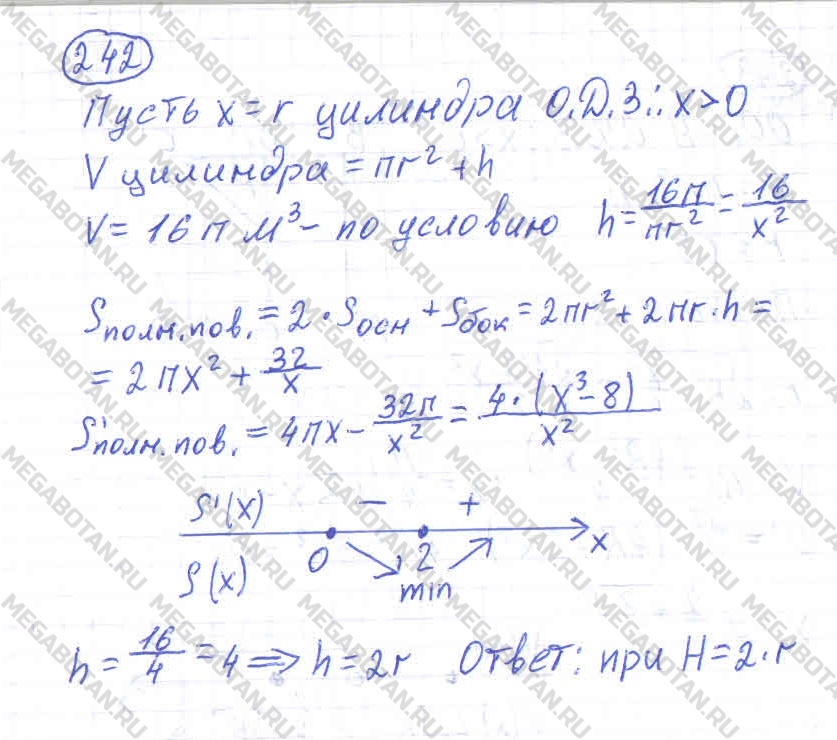 242
Пусть x = r цилиндра О.Д.З.: x>0
V цилиндра = πr² + h
V = 16π м³ - по условию h = 16π/πr² = 16/x²
Sполн.пов. = 2 · Sосн + Sбок = 2πr² + 2πr·h =
= 2πx² + 32/x
S'полн.пов. = 4πx - 32π/x² = 4·(x³-8)/x²
S'(x) - +
0 2 x
S(x) min
h = 16/4 = 4 => h = 2r Ответ: при H = 2·r
MEGABOTAN.RU